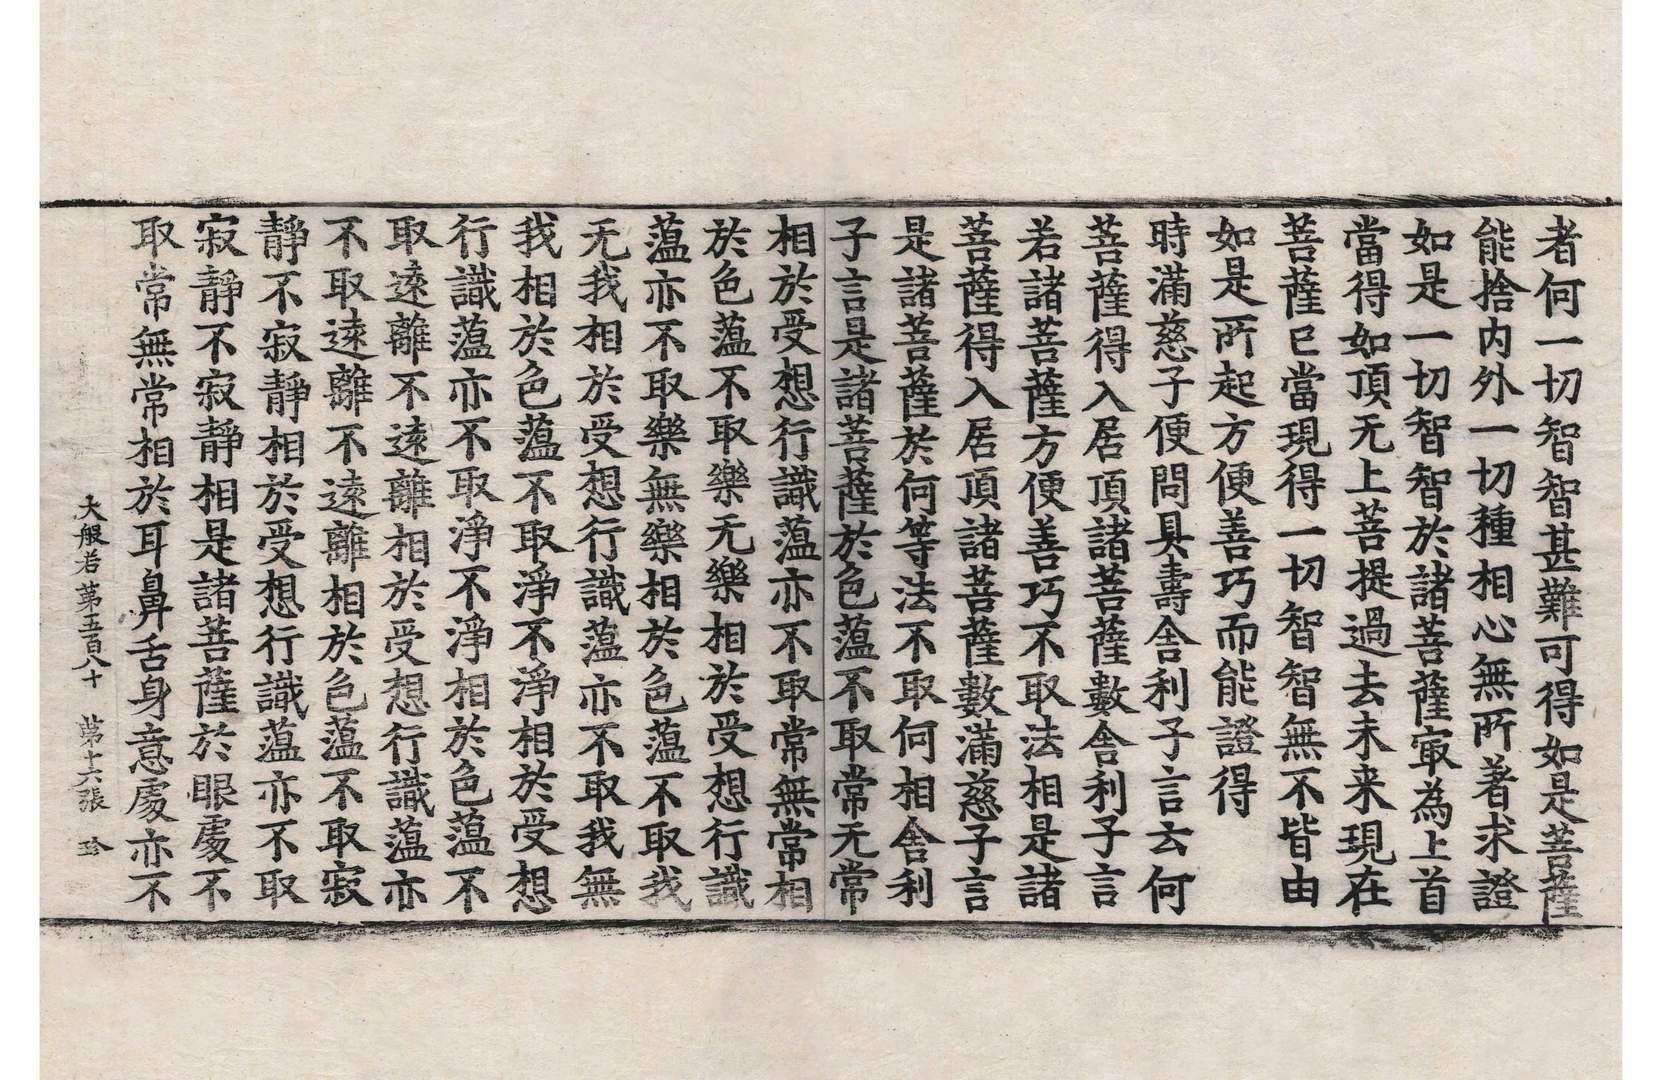 者何一切智智甚難可得如是菩薩
能捨内外一切種相心無所著求證
如是一切智智於諸菩薩㝡為上首
當得如頂无上菩提過去未来現在
菩薩已當現得一切智智無不皆由
如是所起方便善巧而能證得
時滿慈子便問具壽舍利子言云何
菩薩得入居頂諸菩薩數舍利子言
若諸菩薩方便善巧不取法相是諸
菩薩得入居頂諸菩薩數滿慈子言
是諸菩薩於何等法不取何相舍利
子言是諸菩薩於色蕰不取常无常
相於受想行識蕰亦不取常無常相
於色蕰不取樂无樂相於受想行識
蕰亦不取樂無樂相於色蕰不取我
无我相於受想行識蕰亦不取我無
我相於色蕰不取淨不淨相於受想
行識蕰亦不取淨不淨相於色蕰不
取遠離不遠離相於受想行識蕰亦
不取遠離不遠離相於色蕰不取寂
靜不寂靜相於受想行識蕰亦不取
寂靜不寂靜相是諸菩薩於眼處不
取常無常相於耳鼻舌身意處亦不
大般若第五百八十　第十六張　珍